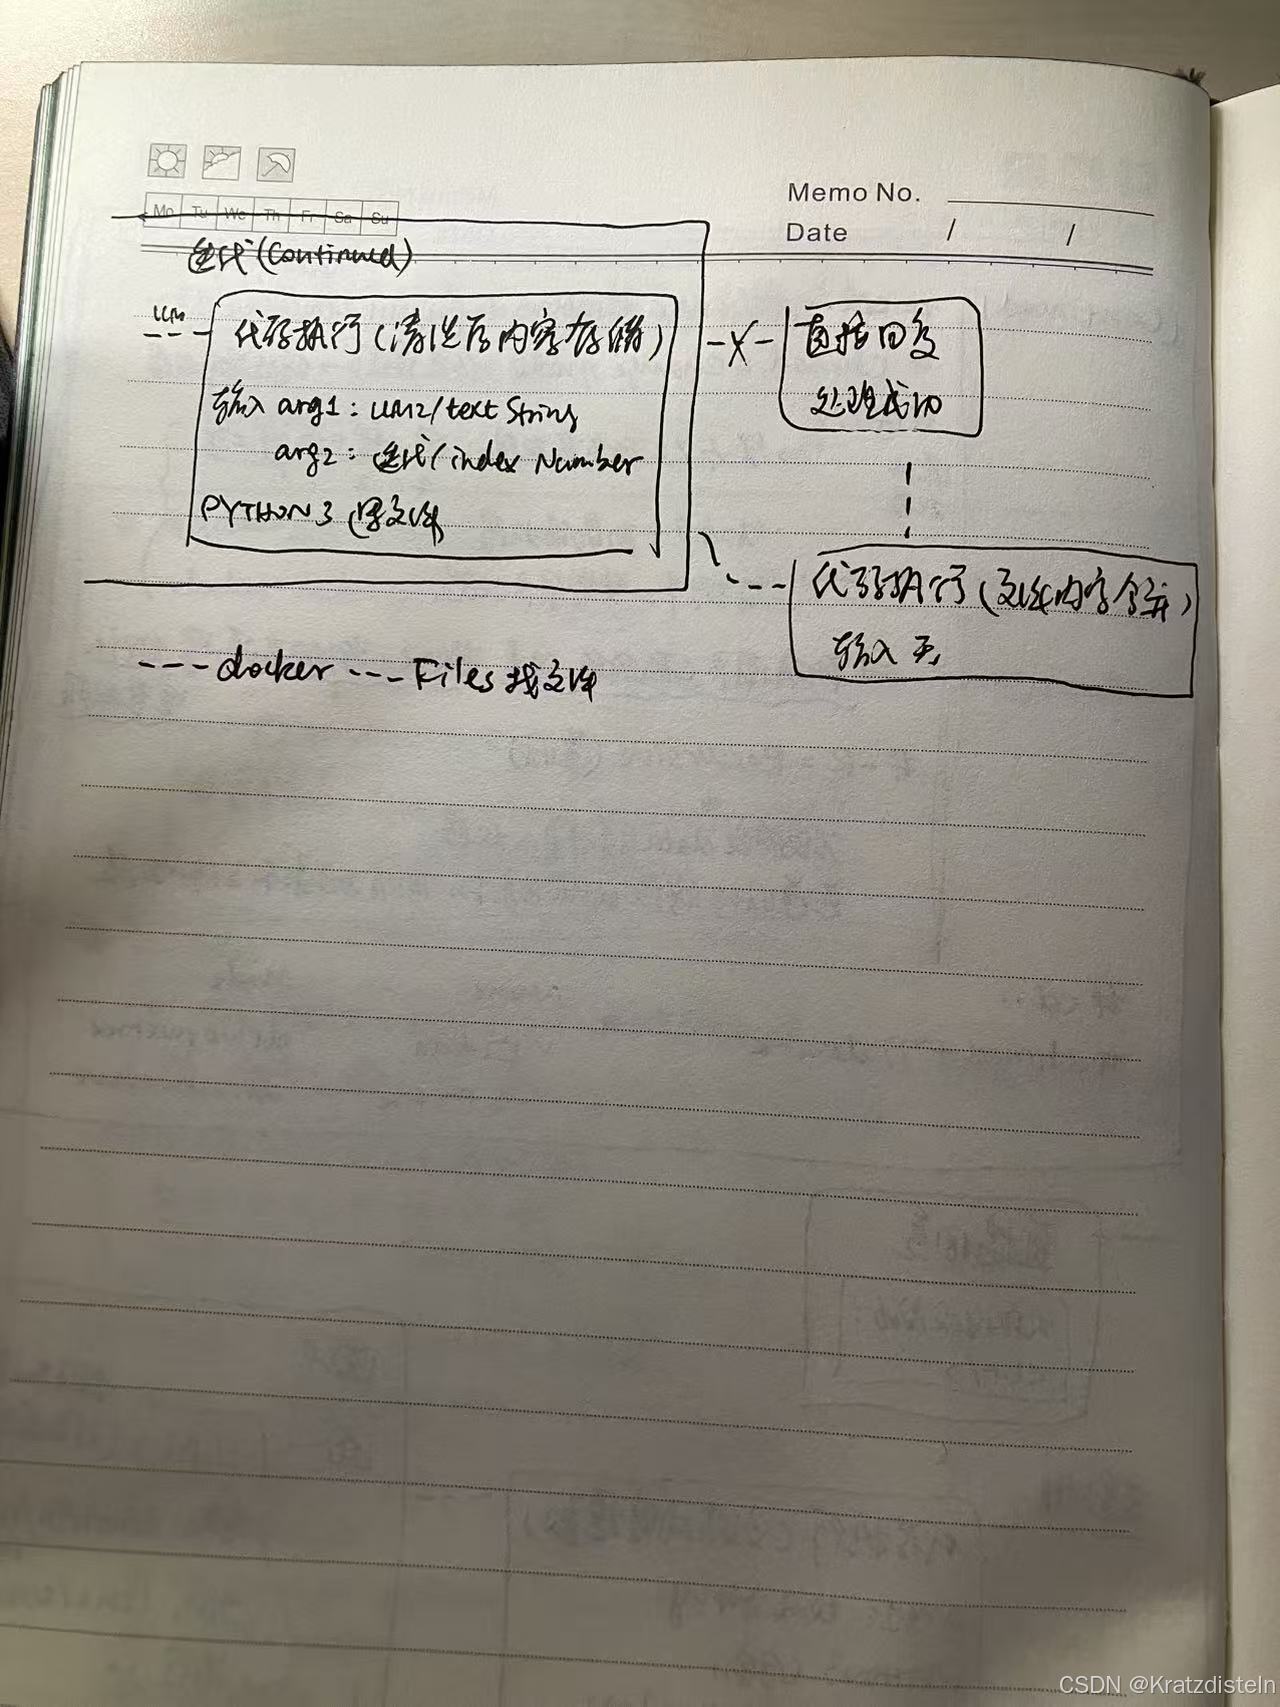 Mo Tu We Th Fr Sa Su
Memo No.
Date / /
迭代(Continued)
LLM
代码执行(清洗后内容存储)
输入 arg1: LLM2/text String
arg2: 迭代/index Number
PYTHON3 (写文件)
X
直接回复
处理成功
代码执行(文件内容合并)
输入 无
--- docker --- Files 找文件
CSDN @Kratzdisteln